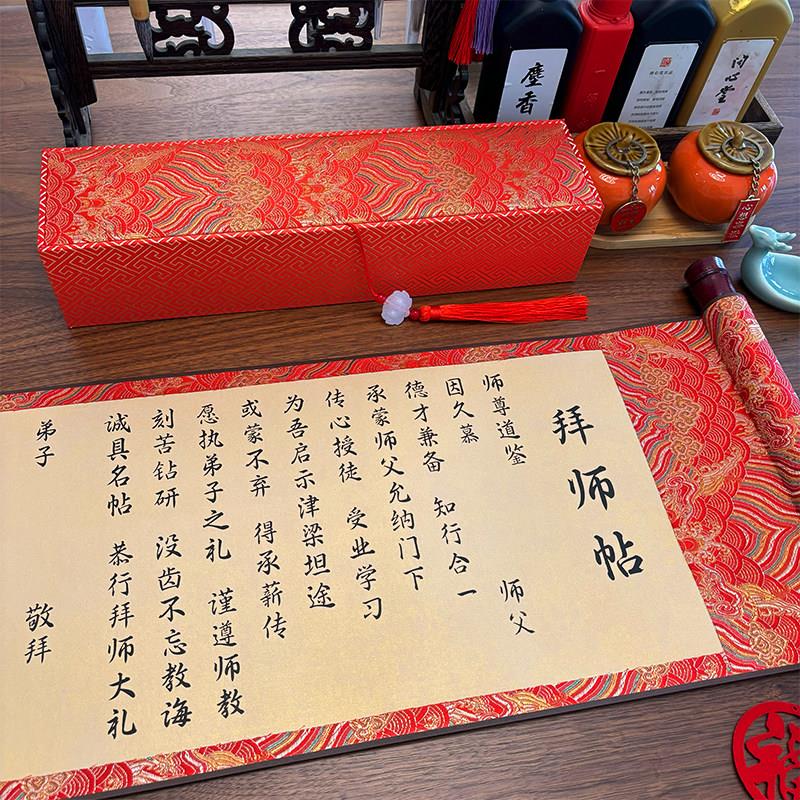 拜师帖
师尊道鉴 师父
因久慕 知行合一
德才兼备
承蒙师父允纳门下
传心授徒 受业学习
为吾启示津梁坦途
或蒙不弃 得承薪传
愿执弟子之礼 谨遵师教
刻苦钻研 没齿不忘教诲
诚具名帖 恭行拜师大礼
弟子 敬拜
麝香
福